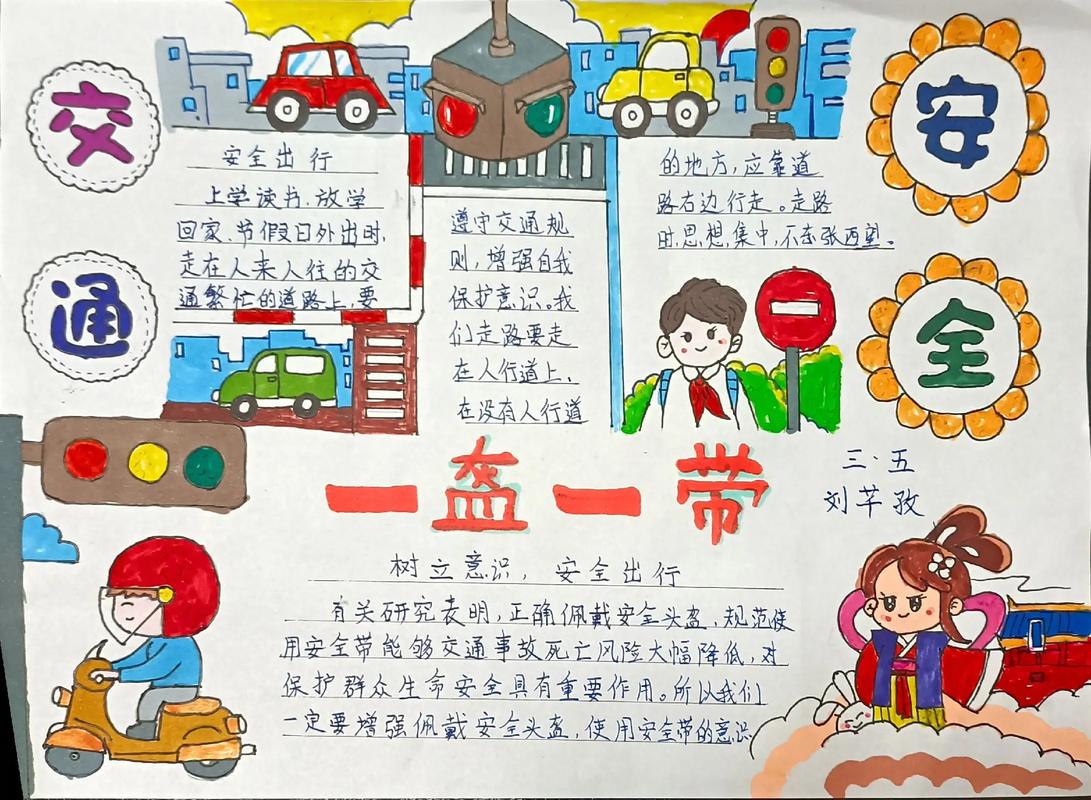 交
通
安
全
安全出行
上学读书、放学
回家、节假日外出时,
走在人来人往的交
通繁忙的道路上,要
遵守交通规
则,增强自我
保护意识。我
们走路要走
在人行道上,
在没有人行道
的地方,应靠道
路右边行走。走路
时,思想集中,不东张西望。
一盔一带
三·五
刘芊孜
树立意识,安全出行
有关研究表明,正确佩戴安全头盔,规范使
用安全带能够交通事故死亡风险大幅降低,对
保护群众生命安全具有重要作用。所以我们
一定要增强佩戴安全头盔,使用安全带的意识